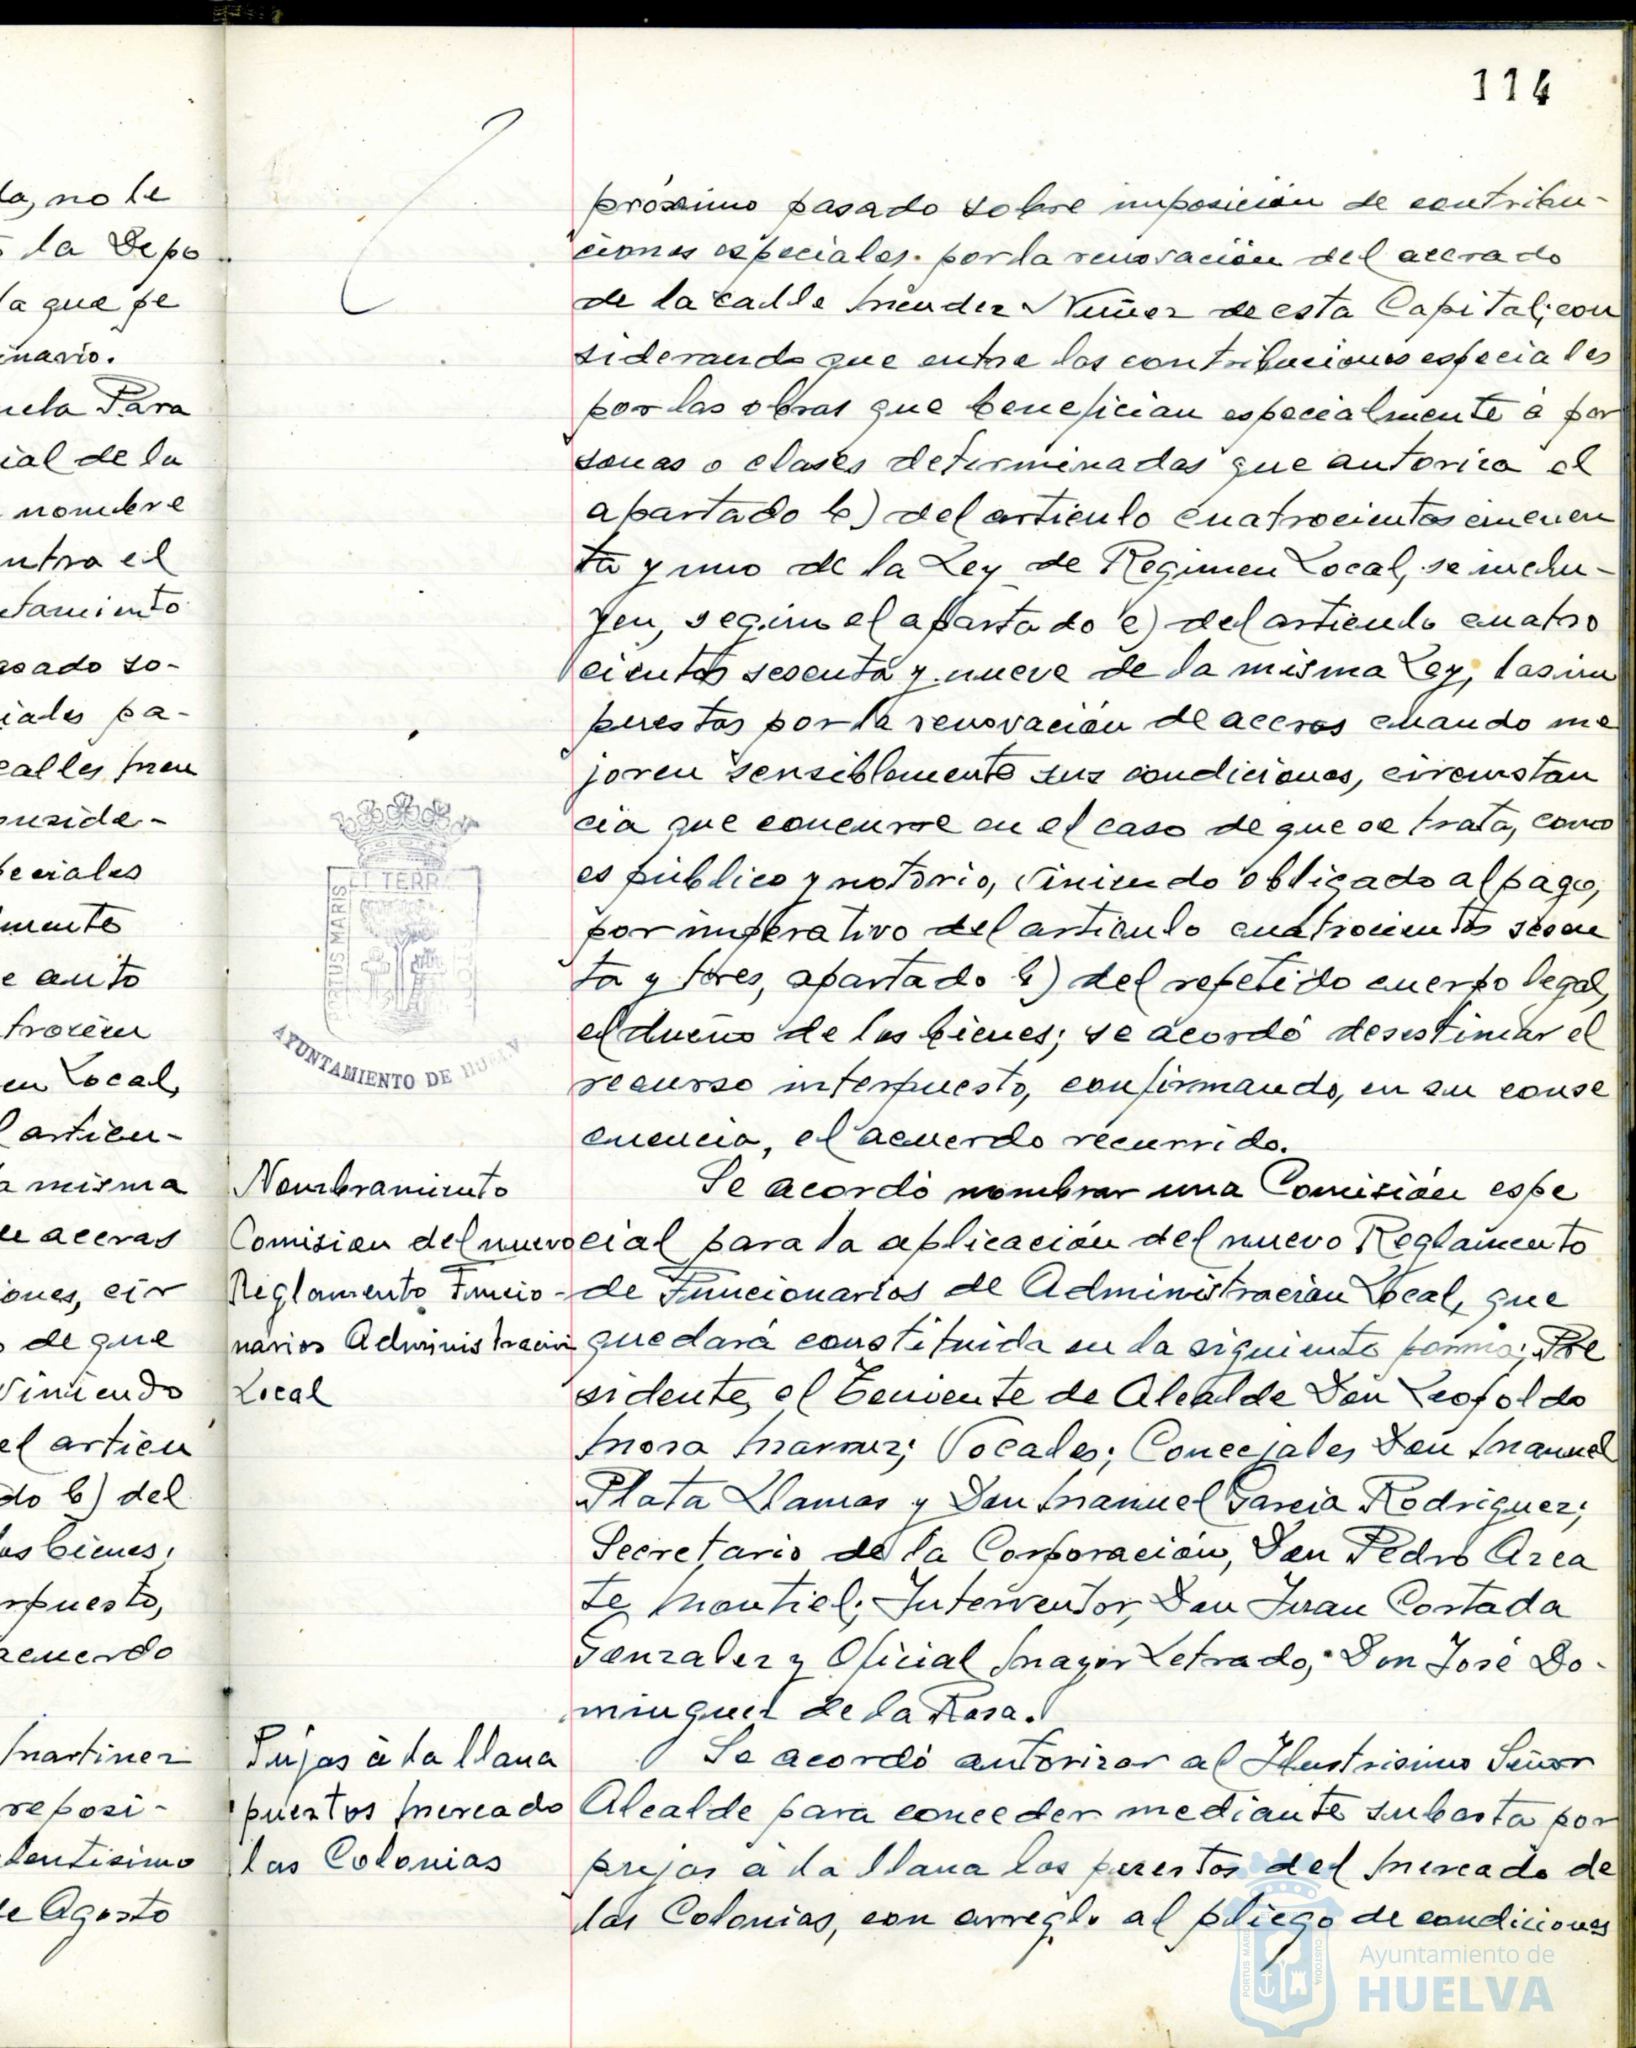 114
da, no le
la Depo
la que fe
inario.
uela Para
ial de la
nombre
ntra el
tamiento
asado so-
iales pa-
calles Men
onside-
peciales
mente
e auto
trocien
en Local,
l articu-
a misma
de aceras
iones, cir
o de que
viniendo
el articu
do b) del
los bienes;
rpuesto,
acuerdo
Martinez
reposi-
lentisimo
de Agosto
ET TERR
PORTUS MARIS
AYUNTAMIENTO DE HUELV
Nombramiento
Comision del nuevo
Reglamento Funcio-
narios Administracion
Local
Pujas à la llana
puestos Mercado
las Colonias
próximo pasado sobre imposición de contribu-
ciones especiales por la renovación del acerado
de la calle Mendez Nuñez de esta Capital; con
siderando que entre las contribuciones especiales
por las obras que benefician especialmente á per
sonas o clases determinadas que autoriza el
apartado b) del articulo cuatrocientos cincuen
ta y uno de la Ley de Regimen Local, se inclu-
yen, según el apartado e) del articulo cuatro
cientos sesenta y nueve de la misma Ley, las im
puestas por la renovación de aceras cuando me
joren sensiblemente sus condiciones, circunstan
cia que concurre en el caso de que se trata, como
es público y notorio, viniendo obligado al pago,
por imperativo del articulo cuatrocientos sesen
ta y tres, apartado b) del repetido cuerpo legal,
el dueño de los bienes; se acordó desestimar el
recurso interpuesto, confirmando, en su conse
cuencia, el acuerdo recurrido.
Se acordó nombrar una Comisión espe
cial para la aplicación del nuevo Reglamento
de Funcionarios de Administración Local, que
quedará constituida en la siguiente forma: Pre
sidente, el Teniente de Alcalde Don Leopoldo
Mora; Vocales; Concejales Don Manuel
Plata Llamas y Don Manuel Garcia Rodriguez;
Secretario de la Corporación, Don Pedro Arca
te Montiel; Interventor, Don Juan Cortada
Gonzalez y Oficial Mayor Letrado, Don José Do-
minguez de la Rosa.
Se acordó autorizar al Ilustrisimo Señor
Alcalde para conceder mediante subasta por
pujas à la llana los puestos del Mercado de
las Colonias, con arreglo al pliego de condiciones
PORTUS MARIS
CUSTODIA
Ayuntamiento de
HUELVA